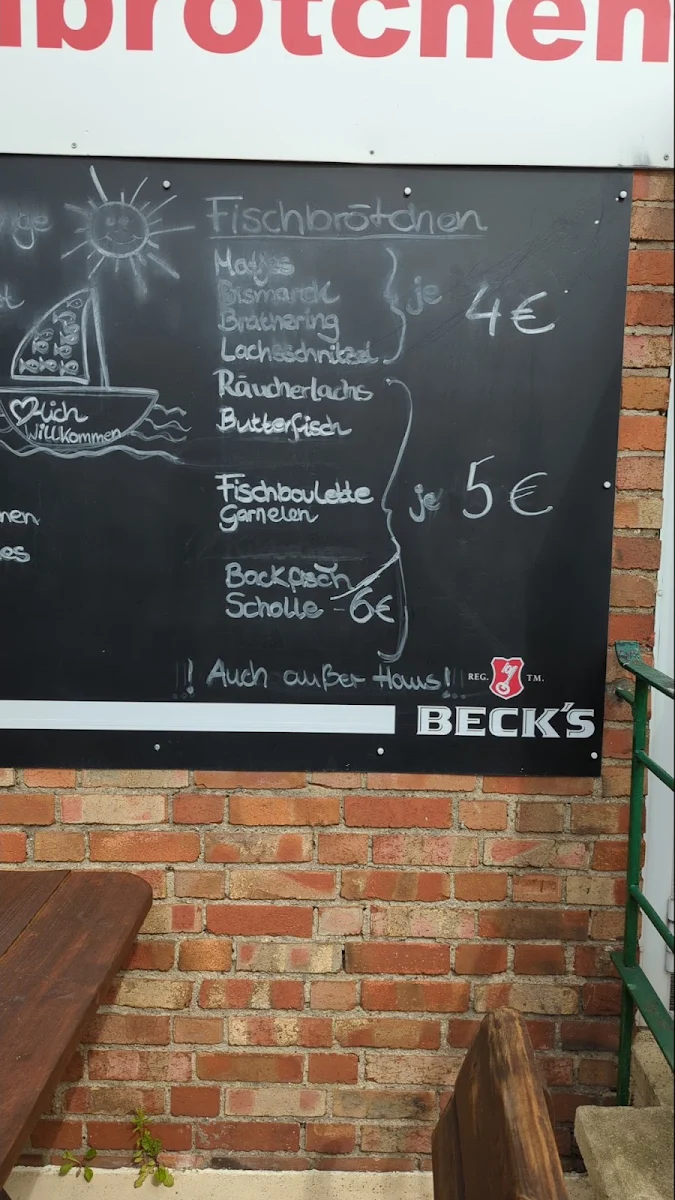 brötchen
Fischbrötchen
Matjes
Bismarck
Brathering
Lachsschnitzel
je 4€
Räucherlachs
Butterfisch
Fischboulette
Garnelen
je 5€
Backfisch
Scholle - 6€
! Auch außer Haus!!
♡lich
Willkommen
REG. TM.
BECK'S